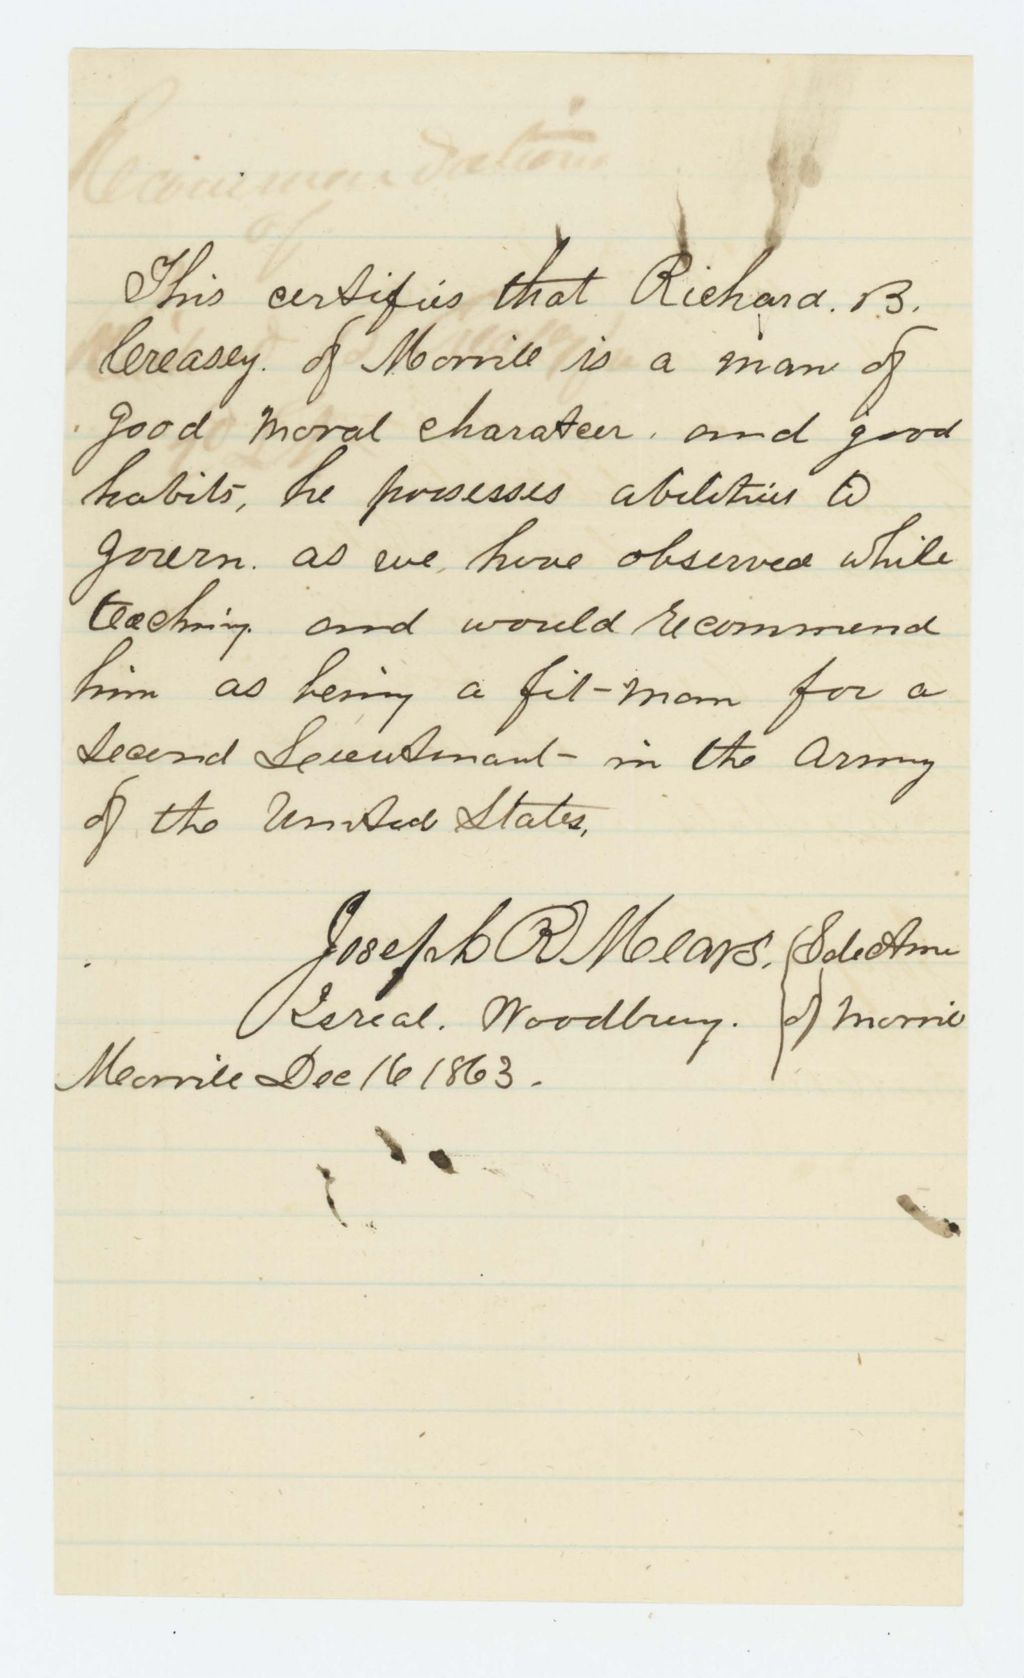 Recommendation
of
This certifies that Richard. B.
Creasey. of Morrill is a man of
good moral charateer. and good
habits, he posesses abilities to
govern. as we have observed while
teaching. and would recommend
him as being a fit-man for a
second Leieutenant- in the Army
of the United States,
Joseph R Mears. Selectme
Isreal. Woodbury. of Morrill
Morrill Dec 16 1863.